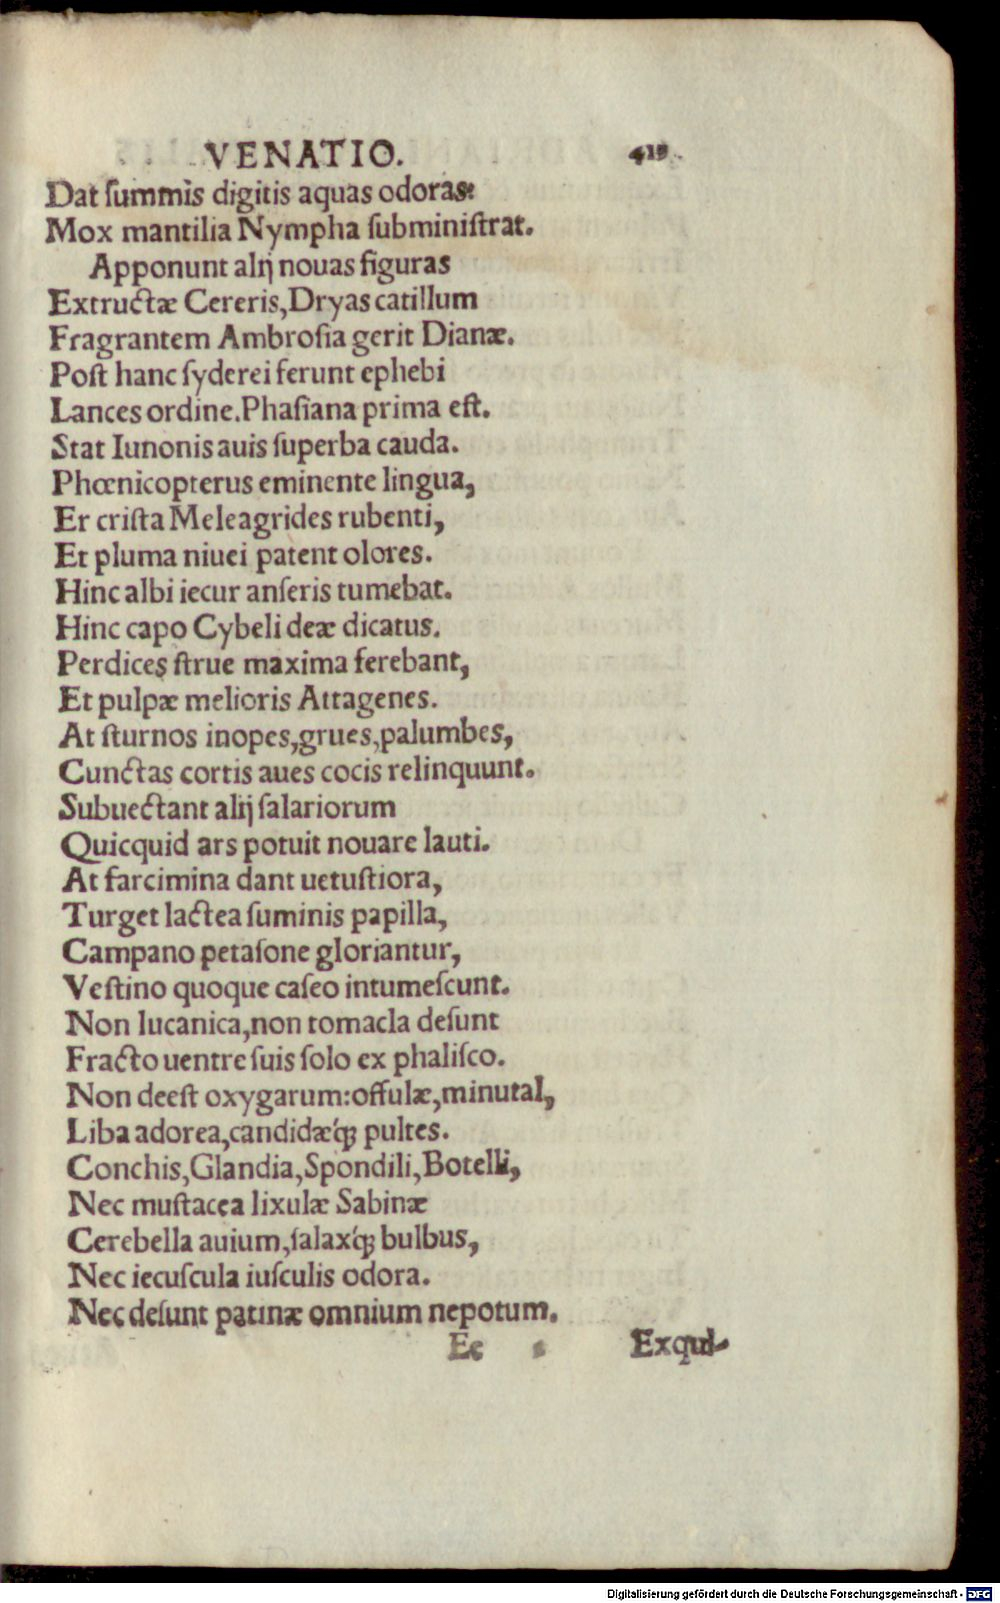 VENATIO. 419
Dat ſummìs digitis aquas odoras:
Mox mantilia Nympha ſubminiſtrat.
Apponunt alij nouas figuras
Extructæ Cereris, Dryas catillum
Fragrantem Ambroſia gerit Dianæ.
Poſt hanc ſyderei ferunt ephebi
Lances ordine. Phaſiana prima eſt.
Stat Iunonis auis ſuperba cauda.
Phœnicopterus eminente lingua,
Er criſta Meleagrides rubenti,
Et pluma niuei patent olores.
Hinc albi iecur anſeris tumebat.
Hinc capo Cybeli deæ dicatus.
Perdices ſtrue maxima ferebant,
Et pulpæ melioris Attagenes.
At ſturnos inopes, grues, palumbes,
Cunctas cortis aues cocis relinquunt.
Subuectant alij ſalariorum
Quicquid ars potuit nouare lauti.
At farcimina dant uetuſtiora,
Turget lactea ſuminis papilla,
Campano petaſone gloriantur,
Veſtino quoque caſeo intumeſcunt.
Non lucanica, non tomacla deſunt
Fracto uentre ſuis ſolo ex phaliſco.
Non deeſt oxygarum: offulæ, minutal,
Liba adorea, candidæq́ꝫ pultes.
Conchis, Glandia, Spondili, Botelli,
Nec muſtacea lixulæ Sabinæ
Cerebella auium, ſalaxq́ꝫ bulbus,
Nec iecuſcula iuſculis odora.
Nec deſunt patinæ omnium nepotum.
Ee Exqui-
Digitalisierung gefördert durch die Deutsche Forschungsgemeinschaft - DFG